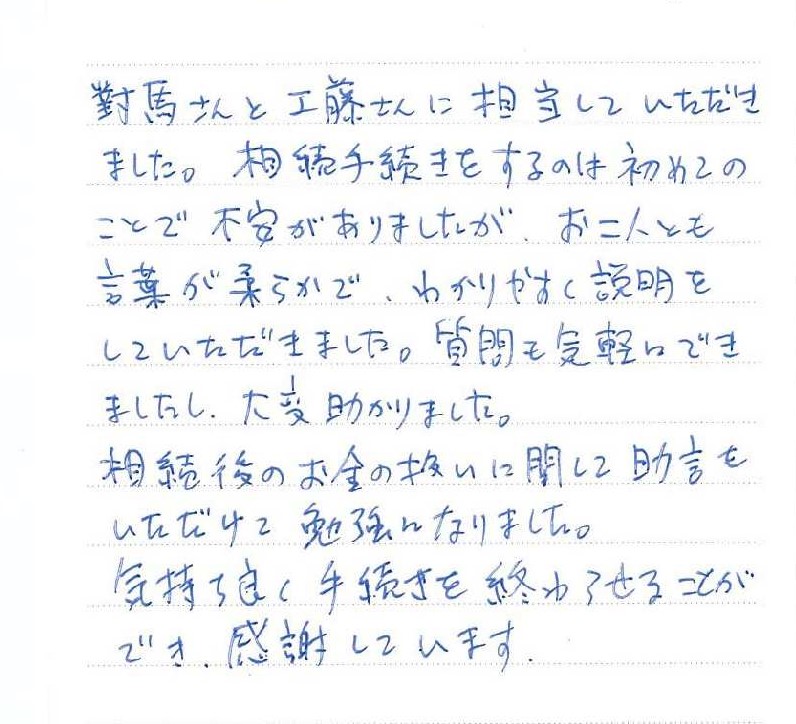 對馬さんと工藤さんに相当していただき
ました。相続手続きをするのは初めての
ことで不安がありましたが、お二人とも
言葉が柔らかで、わかりやすく説明を
していただきました。質問も気軽にでき
ましたし、大変助かりました。
相続後のお金の扱いに関して助言を
いただけて勉強になりました。
気持ち良く手続きを終わらせることが
でき、感謝しています。